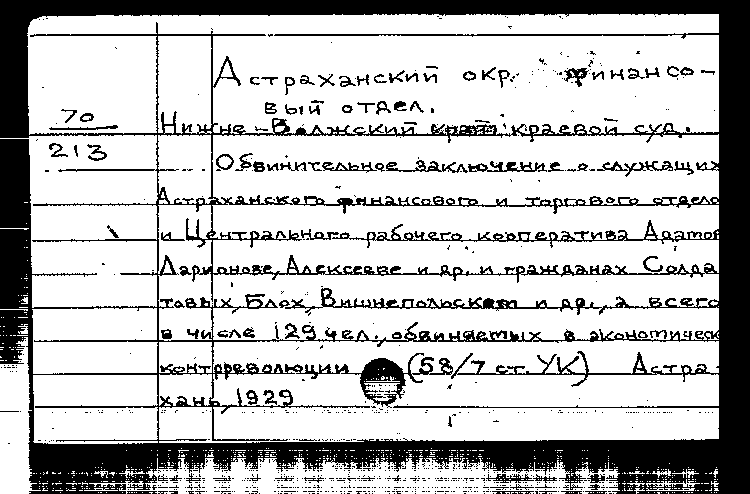 Астраханский окр. финансо-
вый отдел.
70
Нижне-Волжский край краевой суд.
213
Обвинительное заключение о служащих
Астраханского финансового и торгового отдело
и Центрального рабочего кооператива Адатов
Ларионове, Алексееве и др. и гражданах Солда
товых, Блох, Вишнепольском и др., а всего
в числе 129 чел., обвиняемых в экономическ
контрреволюции (58/7 ст. УК) Астра-
хань, 1929